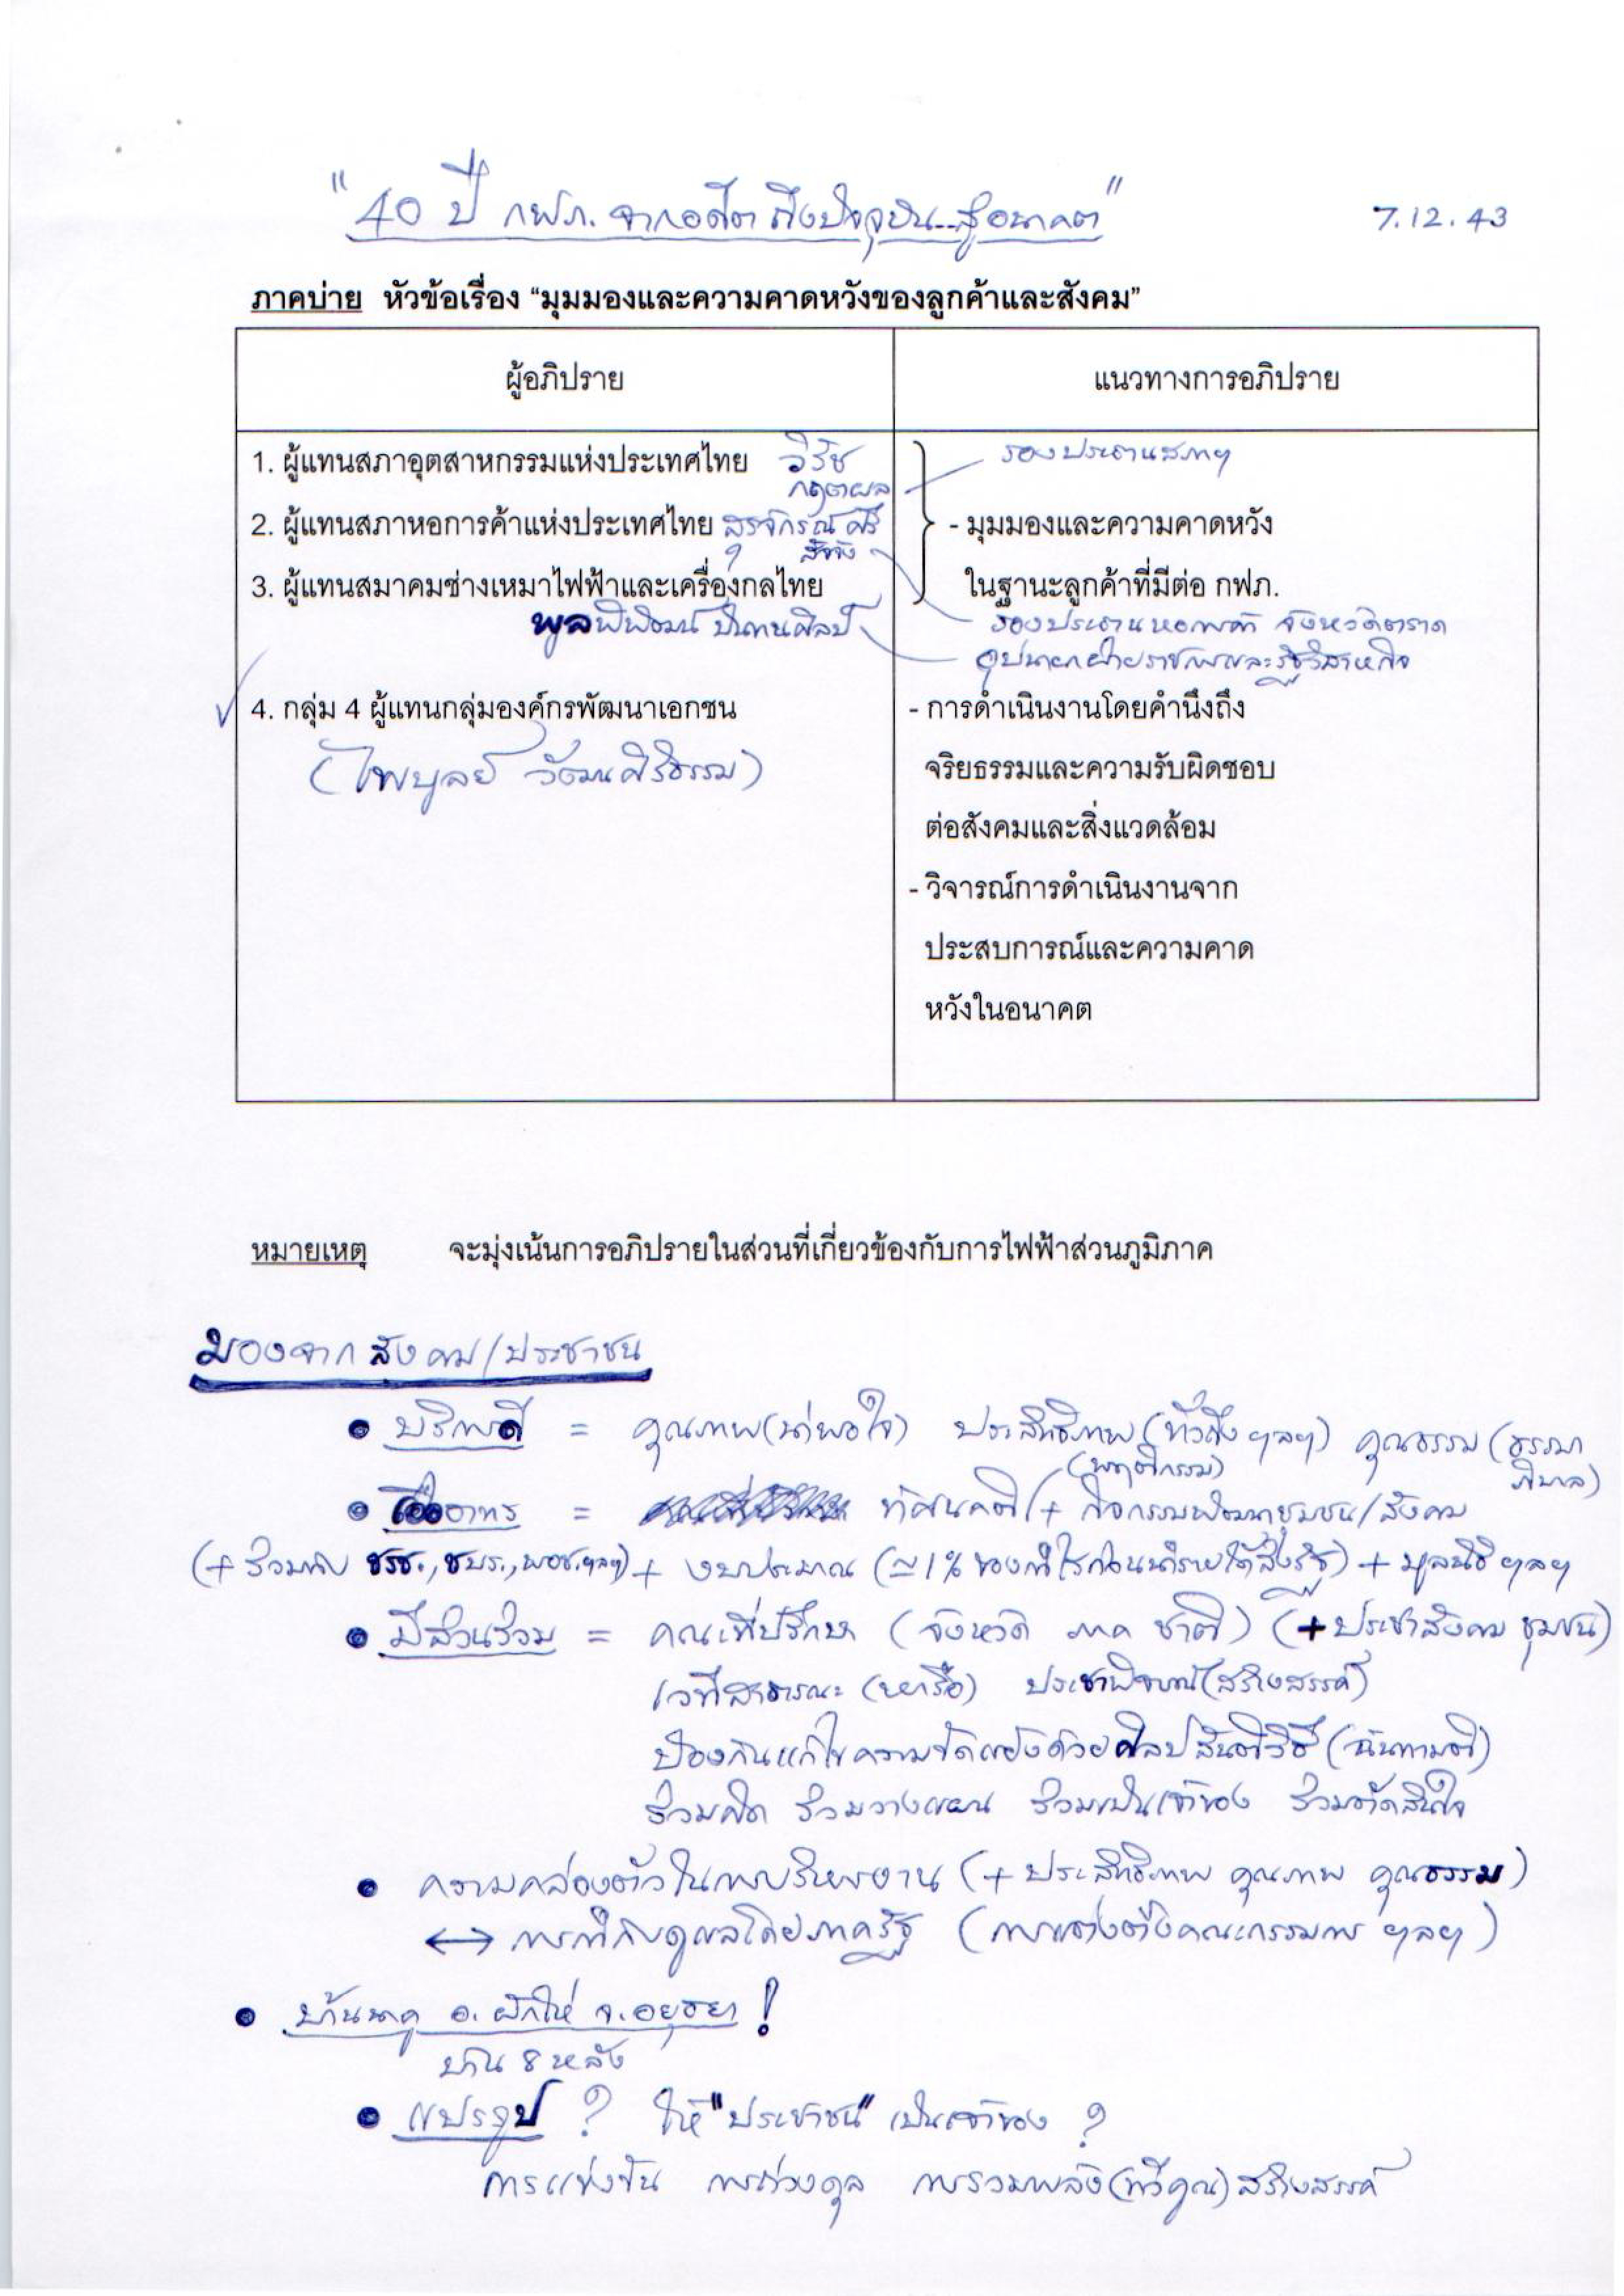 "40 ปี กฟภ. จากอดีต ถึงปัจจุบัน..สู่อนาคต"
7.12.43
ภาคบ่าย หัวข้อเรื่อง “มุมมองและความคาดหวังของลูกค้าและสังคม”
ผู้อภิปราย แนวทางการอภิปราย
1. ผู้แทนสภาอุตสาหกรรมแห่งประเทศไทย วิรัช รองประธานสภาฯ
กฤตผล
2. ผู้แทนสภาหอการค้าแห่งประเทศไทย - มุมมองและความคาดหวัง
3. ผู้แทนสมาคมช่างเหมาไฟฟ้าและเครื่องกลไทย ในฐานะลูกค้าที่มีต่อ กฟภ.
พูลพิพัฒน์ ปั้นทนศิลป์ รองประธานหอการค้า จังหวัดตราด
อุปนายกฝ่ายราชการและรัฐวิสาหกิจ
4. กลุ่ม 4 ผู้แทนกลุ่มองค์กรพัฒนาเอกชน - การดำเนินงานโดยคำนึงถึง
(ไพบูลย์ วัฒนศิริธรรม) จริยธรรมและความรับผิดชอบ
ต่อสังคมและสิ่งแวดล้อม
- วิจารณ์การดำเนินงานจาก
ประสบการณ์และความคาด
หวังในอนาคต
หมายเหตุ จะมุ่งเน้นการอภิปรายในส่วนที่เกี่ยวข้องกับการไฟฟ้าส่วนภูมิภาค
มองจากสังคม/ประชาชน
• บริการดี = คุณภาพ(น่าพอใจ) ประสิทธิภาพ(ทั่วถึง ฯลฯ) คุณธรรม (ธรรมา
ภิบาล)
(พฤติกรรม)
• เอื้ออาทร = ทัศนคติ + กิจกรรมพัฒนาชุมชน/สังคม
(+ ร่วมกับ ชรช., ชบร., พอช. ฯลฯ) + งบประมาณ (≃1% ของกำไรก่อนนำรายได้ส่งรัฐ) + มูลนิธิ ฯลฯ
• มีส่วนร่วม = คณะที่ปรึกษา (จังหวัด ภาค ชาติ) (+ประชาสังคม ชุมชน)
เวทีสาธารณะ (หารือ) ประชาพิจารณ์(สร้างสรรค์)
ป้องกันแก้ไขความขัดแย้งด้วยศิลปสันติวิธี (ฉันทามติ)
ร่วมคิด ร่วมวางแผน ร่วมเป็นเจ้าของ ร่วมตัดสินใจ
• ความคล่องตัวในการบริหารงาน (+ ประสิทธิภาพ คุณภาพ คุณธรรม)
↔ การกำกับดูแลโดยภาครัฐ (การแต่งตั้งคณะกรรมการ ฯลฯ)
• บ้านนาคู อ. ผักไห่ จ.อยุธยา !
บ้าน 8 หลัง
• แปรรูป ? ให้ "ประชาชน" เป็นเจ้าของ ?
การแข่งขัน การถ่วงดุล การรวมพลัง(ทวีคูณ)สร้างสรรค์